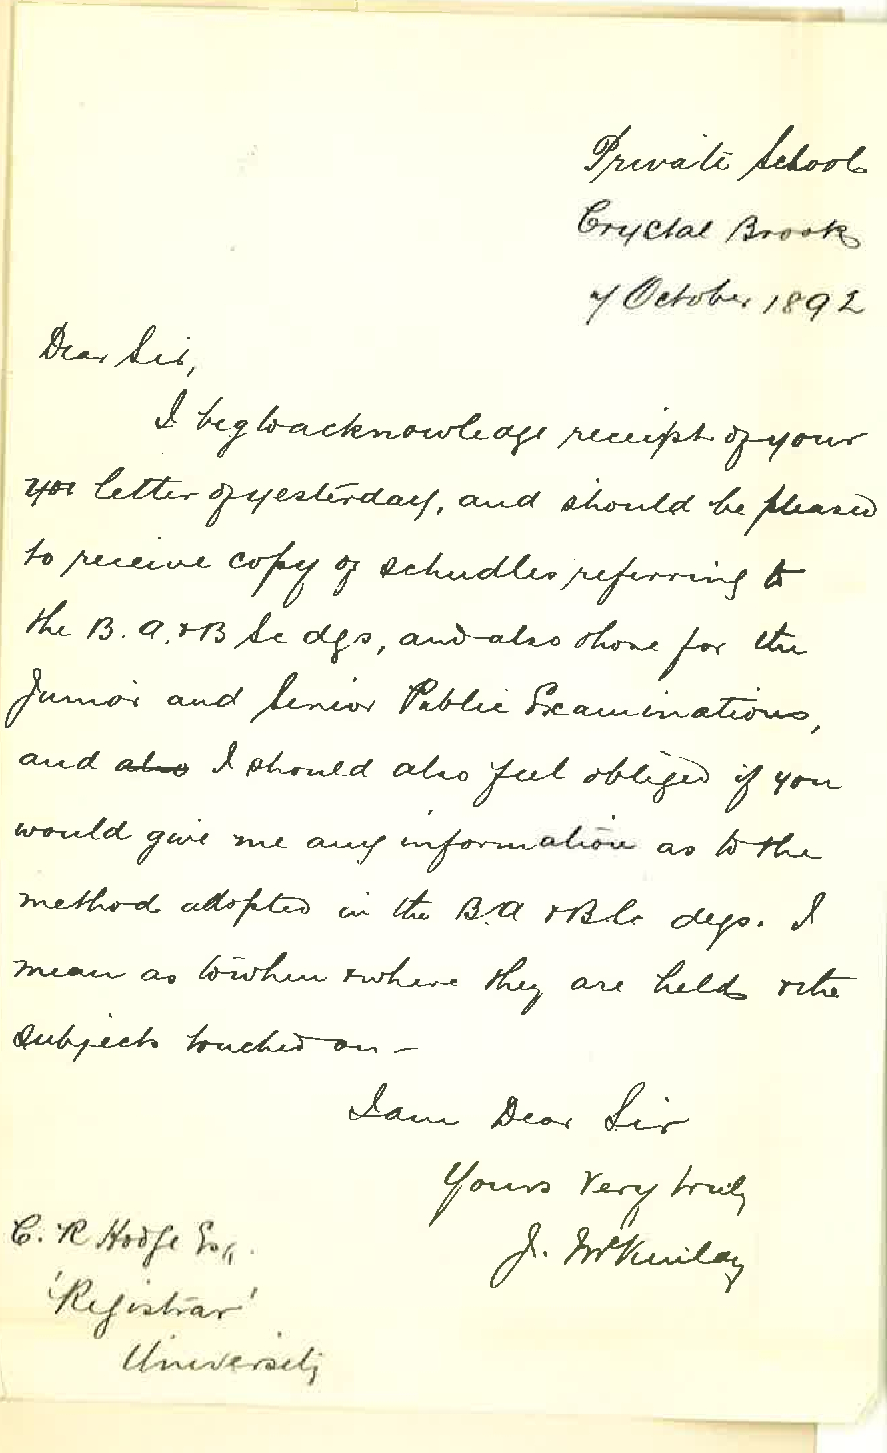 Private School
Crystal Brook
7 October 1892
Dear Sir,
I beg to acknowledge receipt of your
you letter of yesterday, and should be pleased
to receive copy of schudles referring to
the B. A. & B Sc dgs, and also those for the
Junior and Senior Public Examinations,
and also I should also feel obliged if you
would give me any information as to the
method adopted in the B.A & B Sc degs. I
mean as to when & where they are held & the
subjects touched on –
I am Dear Sir
Yours very truly
J. McKinlay
C. R Hodge Esq.
'Registrar'
University